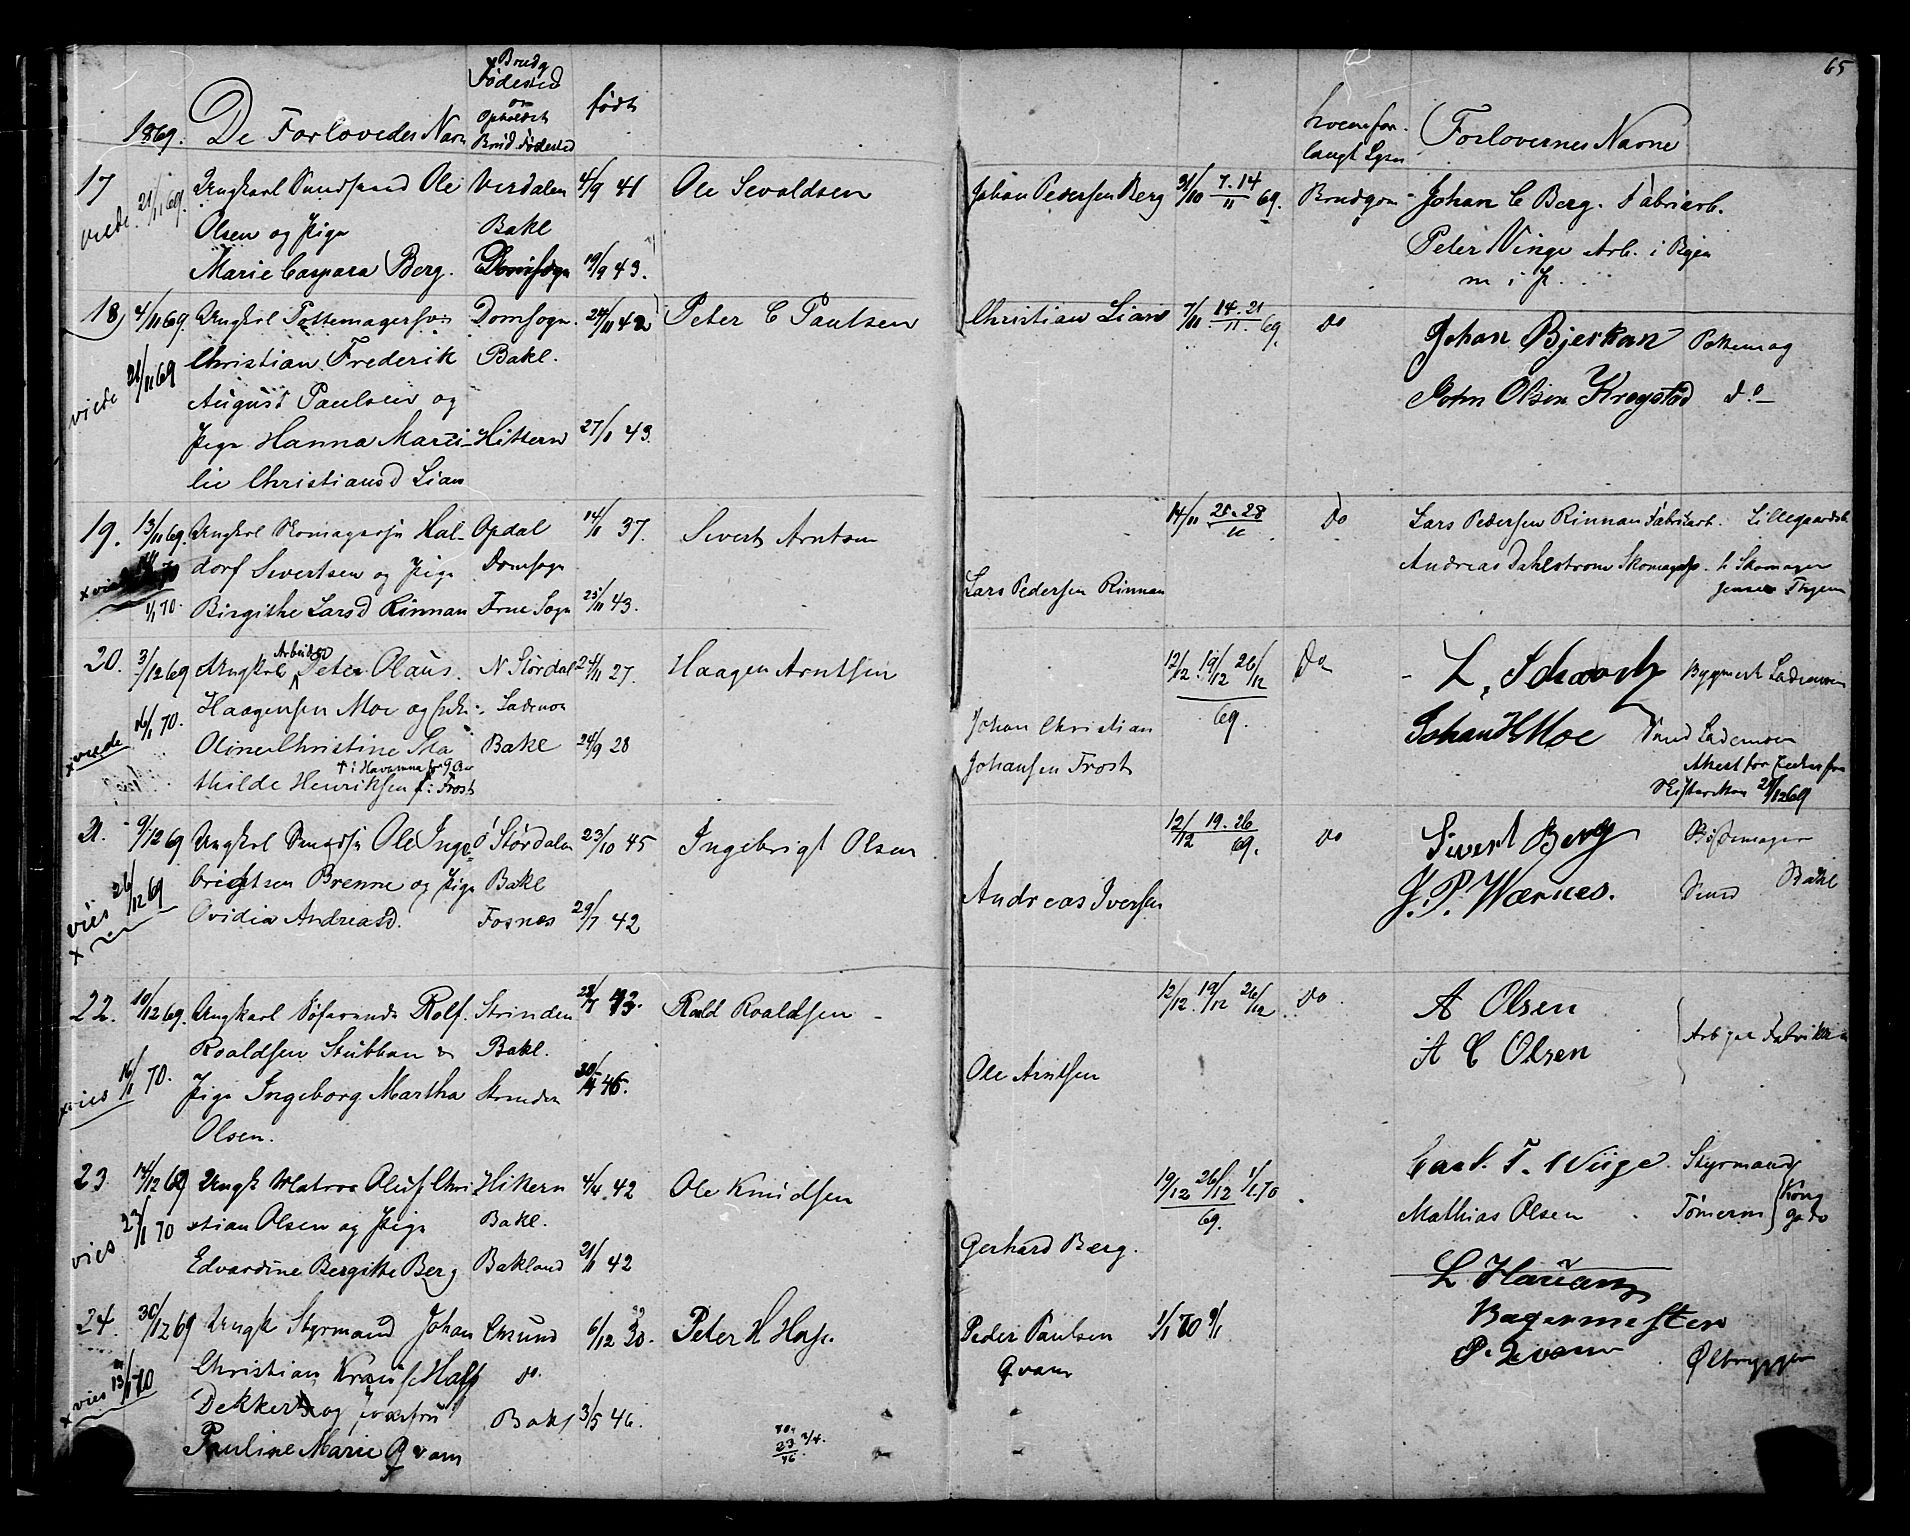 65
1869. De Forlovedes Navn Brudg Fødested og Opholdst Brud. Fødested født hvem for- langt Lysn Forlovernes Navne
17 Ungkarl Ole Verdalen 4/9 41 Ole Sevaldsen Johan Pedersen Berg 31/10 7.14/11 69. Brudgom Johan C Berg. Fabriarb.
viede 21/11 69. Olsen og Pige Bakl Peter Vinge Arb. i Byen
Marie Caspara Berg. Domsogn 19/9 43.
18, 4/11 69. Ungkrl Pottemagersv Domsogn. 24/11 42 Peter C Paulsen Christian Lian 7/11 14.21/11 69. Do Johan Bjerkan Pottemag
viede 21/11 69 Christian Frederik Bakl.
August Paulsen og John Olsen Krogstad do
Pige Hanna Marti- Hittern 27/1 43.
lie Christiansd Lian
19. 13/11 69. Ungkrl Skomagersv Hal- Opdal 14/1 37. Sivert Arntsen 14/11 21.28/11 Do Lars Pedersen Rinnan Fabriarb. Lillegaardsb
dorf Sivertsen og Pige Domsogn Andreas Dahlstrøm Skomagersv. h Skomager
1/1 70. Birgithe Larsd Rinnan Frue Sogn 25/11 43. Lars Pedersen Rinnan Jensen
20. 3/12 69 Ungkrl Arbeider Peter Olaus N Stördal 24/11 27. Haagen Arntsen 12/12 19/12 26/12 69. Do L. Schwach Bygmest Lademoen
xviede 16/1 70. Haagensen Moe og Enke Lademoe Johan Christian Johan H Moe Lademoen
Oline Christine Ma Bakl 24/9 28 Johansen Frost Attest for
thilde Henriksen f: Frost Skifteretten 24/12 69
21. 9/12 69 Ungkrl Ole Inge- Ö Stördalen 23/10 45 Ingebrigt Olsen 12/12 19.26/69. do Sivert Berg Bøssemager
viès 26/12 69 brigtsen Brenne og Pige Bakl Andreas Iversen J. P. Wærnes. Bakl
x Ovidia Andreasd. Fosnæs 29/7 42
22. 10/12 69. Ungkarl Söfarende Rolf. Strinden 43. Roald Roaldsen 12/12. 19/12 26/12 do A Olsen
Roaldsen Stubban & Bakl. A C Olsen
xvies 16/1 70. Pige Ingeborg Martha Strinden 45. Ole Arntsen
Olsen.
23 14/12 69 Ungk Matros Oluf Chri Hittern 4/4. 42 Ole Knudsen 19/12 26/12 1/1.70 69. Styrmand
vies 23/1 70 stian Olsen og Pige Bakl. Mathias Olsen Tömerm Kong gade
Edvardine Bergitte Berg Bakland 21/1 42 Gerhard Berg.
24. 30/12 69 Ungk Styrmand Johan 6/12 Peter H Peder Paulsen 1/1 70 9/1 Bagermester
xvies 13/1 70 Christian do Qvam P. Qvam Ølbrygger
Dekker og Jomfru Bakl 3/5 46.
Pauline Marie Qvam